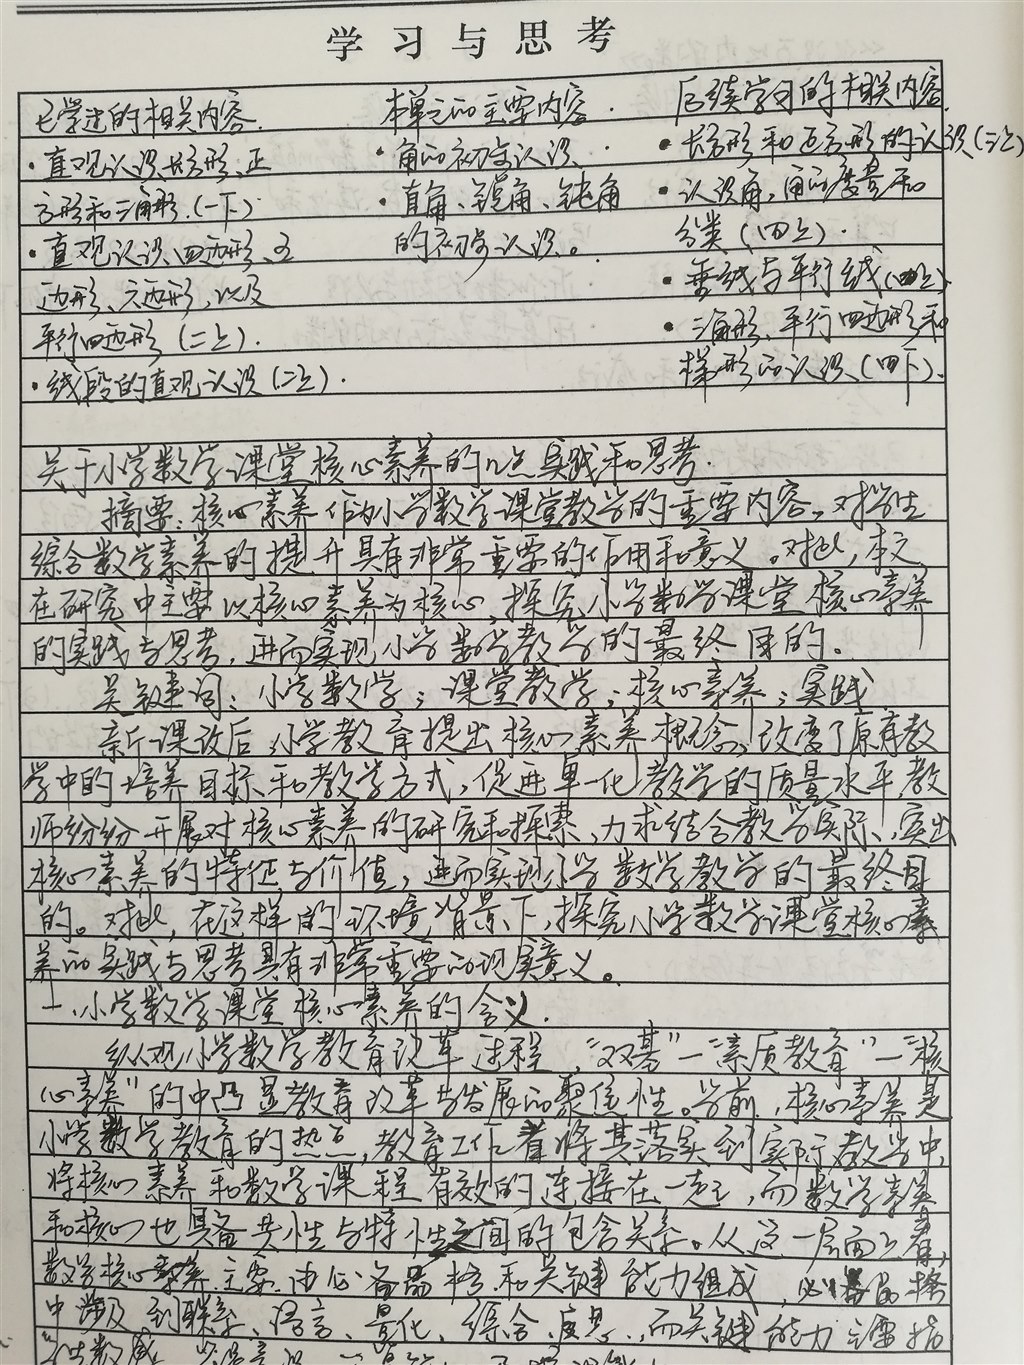 学习与思考
已学过的相关内容. 本单元的主要内容. 后续学习的相关内容
·直观认识长方形、正 ·角的初步认识. ·长方形和正方形的认识(三上)
方形和三角形.(一下) ·直角、锐角、钝角 ·认识角,角的度量和
·直观认识四边形、五 的初步认识。 分类(四上).
边形、六边形,以及 ·垂线与平行线(四上)
平行四边形(二上). ·三角形、平行四边形和
·线段的直观认识(二上). 梯形的认识(四下).
关于小学数学课堂核心素养的几点实践和思考.
摘要:核心素养作为小学数学课堂教学的重要内容,对学生
综合数学素养的提升具有非常重要的作用和意义。对此,本文
在研究中主要以核心素养为核心,探究小学数学课堂核心素养
的实践与思考,进而实现小学数学教学的最终目的。
关键词:小学数学;课堂教学;核心素养;实践
新课改后,小学教育提出核心素养概念,改变了原有教
学中的培养目标和教学方式,促进单一化教学的质量水平教
师纷纷开展对核心素养的研究和探索,力求结合教学实际,突出
核心素养的特征与价值,进而实现小学数学教学的最终目
的。对此,在这样的环境背景下,探究小学数学课堂核心素
养的实践与思考具有非常重要的现实意义。
一、小学数学课堂核心素养的含义.
纵观小学数学教育改革进程,“双基”—“素质教育”—“核
心素养”的中凸显教育改革与发展的聚焦性。当前,核心素养是
小学数学教育的热点,教育工作者将其落实到实际教学中,
将核心素养和数学课程有效的连接在一起,而数学素养
和核心也具备共性与特性之间的包含关系。从这一层面上看,
数学核心素养主要由必备品格和关键能力组成,必备品格
中涉及到联系、语言、量化、综合、反思,而关键能力主要指